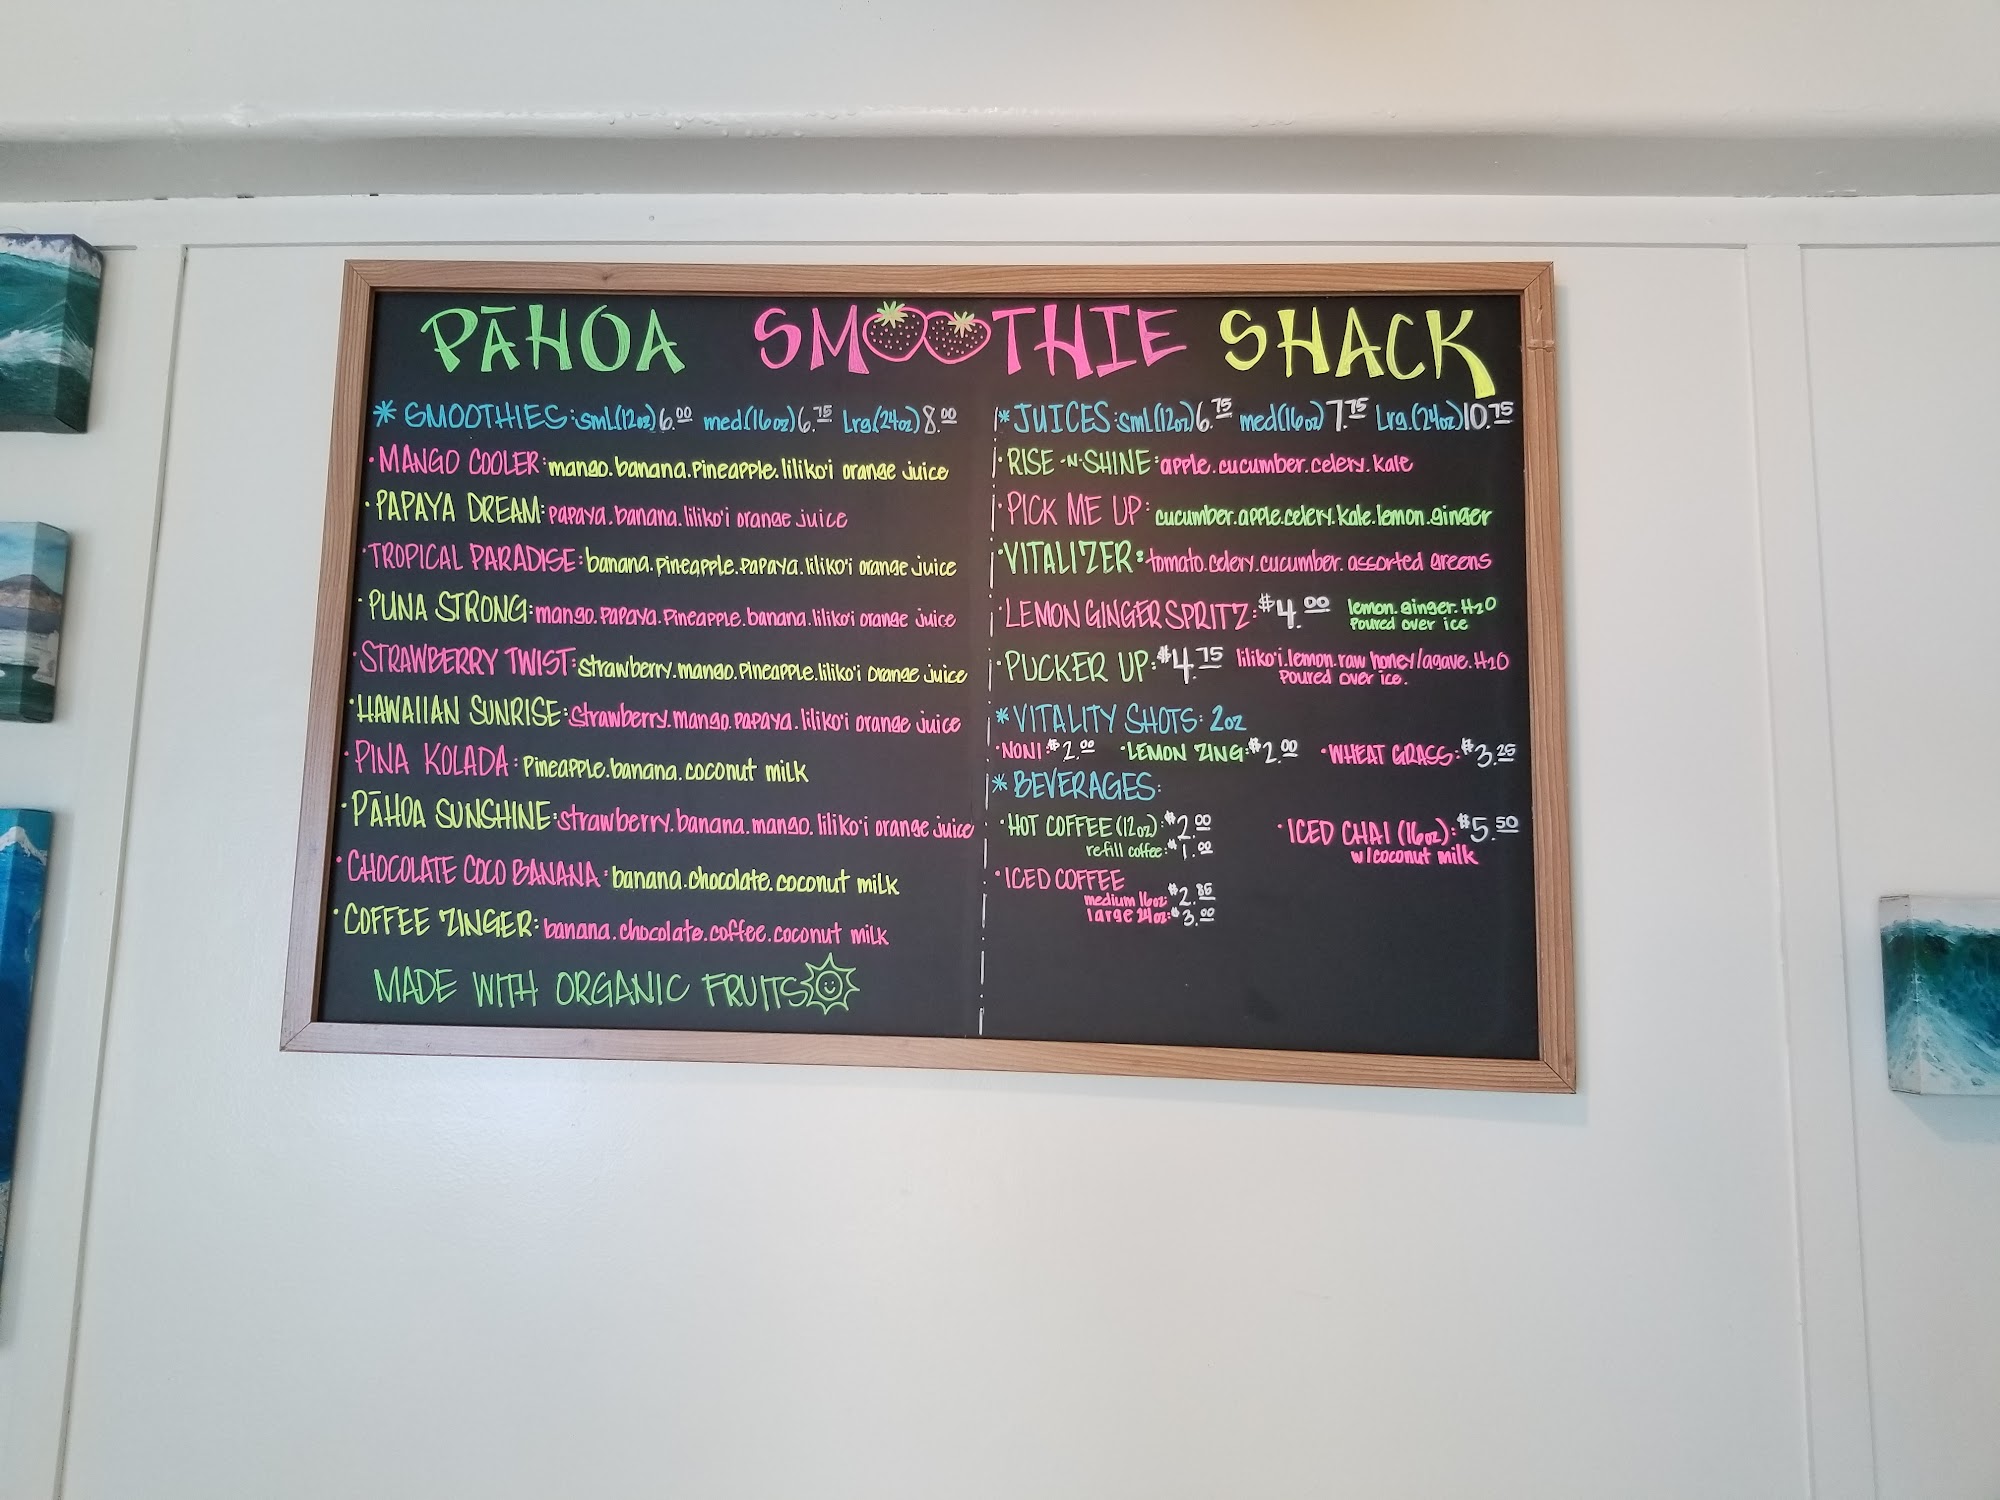 PĀHOA SMOOTHIE SHACK
* SMOOTHIES: sml(12oz)6.00 med.(16oz)6.75 Lrg.(24oz)8.00
· MANGO COOLER: mango.banana.pineapple.liliko'i orange juice
· PAPAYA DREAM: papaya.banana.liliko'i orange juice
· TROPICAL PARADISE: banana.pineapple.papaya.liliko'i orange juice
· PUNA STRONG: mango.papaya.pineapple.banana.liliko'i orange juice
· STRAWBERRY TWIST: strawberry.mango.pineapple.liliko'i orange juice
· HAWAIIAN SUNRISE: strawberry.mango.papaya.liliko'i orange juice
· PINA KOLADA: pineapple.banana.coconut milk
· PĀHOA SUNSHINE: strawberry.banana.mango.liliko'i orange juice
· CHOCOLATE COCO BANANA: banana.chocolate.coconut milk
· COFFEE ZINGER: banana.chocolate.coffee.coconut milk
MADE WITH ORGANIC FRUITS
* JUICES: sml(12oz)6.75 med(16oz)7.75 Lrg.(24oz)10.75
· RISE -N- SHINE: apple.cucumber.celery.kale
· PICK ME UP: cucumber.apple.celery.kale.lemon.ginger
· VITALIZER: tomato.celery.cucumber.assorted greens
· LEMON GINGER SPRITZ: $4.00 lemon.ginger.H2O
poured over ice
· PUCKER UP: $4.75 liliko'i.lemon.raw honey/agave.H2O
poured over ice.
* VITALITY SHOTS: 2oz
· NONI: $2.00 · LEMON ZING: $2.00 · WHEAT GRASS: $3.25
* BEVERAGES:
· HOT COFFEE (12oz): $2.00
refill coffee: $1.00
· ICED CHAI (16oz): $5.50
w/coconut milk
· ICED COFFEE
medium 16oz: $2.85
large 24oz: $3.00